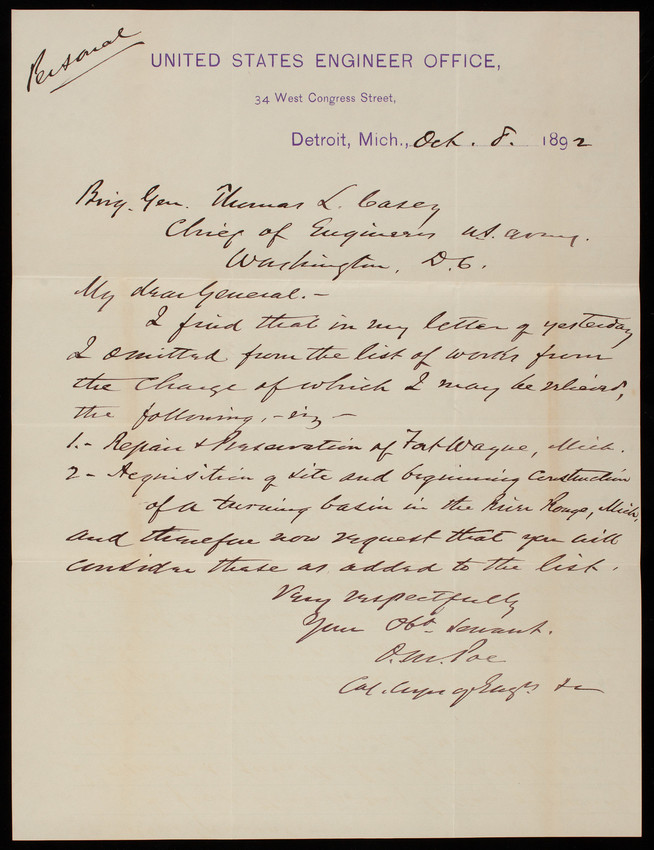 Personal
UNITED STATES ENGINEER OFFICE,
34 West Congress Street,
Detroit, Mich., Oct. 8. 1892
Brig. Gen. Thomas L. Casey
Chief of Engineers U.S. Army.
Washington, D.C.
My dear General.-
I find that in my letter of yesterday
I omitted from the list of works from
the charge of which I may be relieved,
the following, - viz -
1.- Repair & Preservation of Fort Wayne, Mich.
2- Acquisition of site and beginning construction
of a turning basin in the River Rouge, Mich,
and therefore now request that you will
consider these as added to the list.
Very respectfully
Your Obt. servant.
O.M. Poe
Col. Corps of Engrs. &c